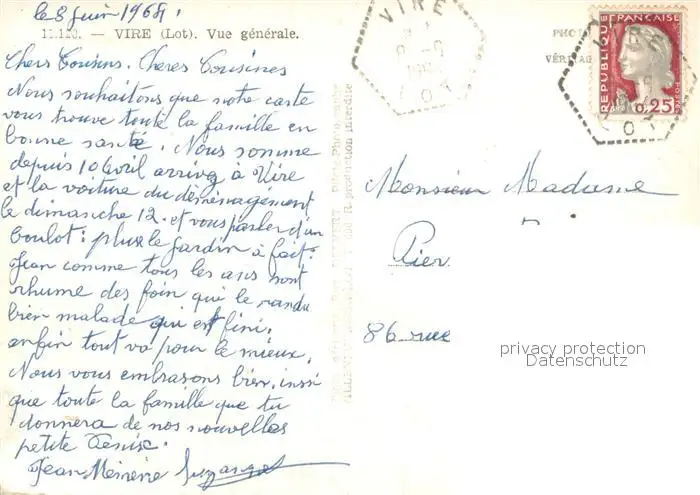 le 8 Juin 1968.
11.120. — VIRE (Lot). Vue générale.
Chers Cousins. Cheres Cousines
Nous souhaitons que notre carte
vous trouve toute la famille en
bonne santé. Nous somme
depuis 10 Avril arrivez à Vire
et la voiture du déménagement
le dimanche 12. et vous parler d'un
boulot: plus le jardin à fait.
Jean comme tous les ans sont
rhume des foin qui le rendu
bien malade qui est fini.
enfin tout va pour le mieux.
Nous vous embrasons bien. inssi
que toute la famille que tu
donnera de nos nouvelles
petite Denise.
Jean
VIRE
LOT
PHO
VÉRITA
RÉPUBLIQUE FRANÇAISE
POSTES
0,25
VIRE
LOT
R. production interdite
Monsieur Madame
Pier
86 rue
privacy protection
Datenschutz